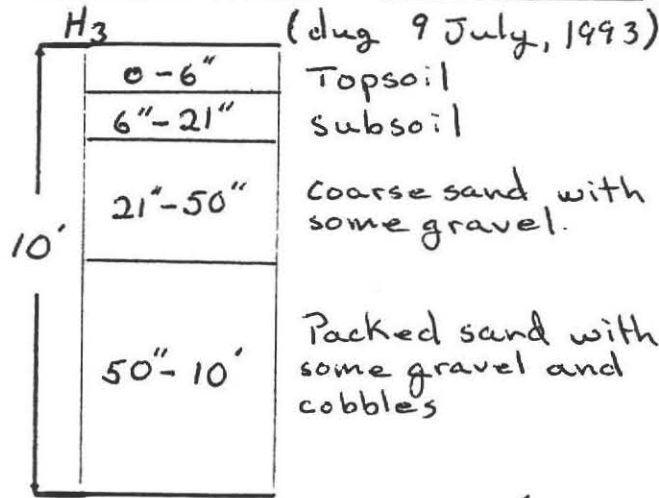 H3 (dug 9 July, 1993)
0-6" Topsoil
6"-21" subsoil
21"-50" coarse sand with
some gravel.
10'
50"-10' Packed sand with
some gravel and
cobbles